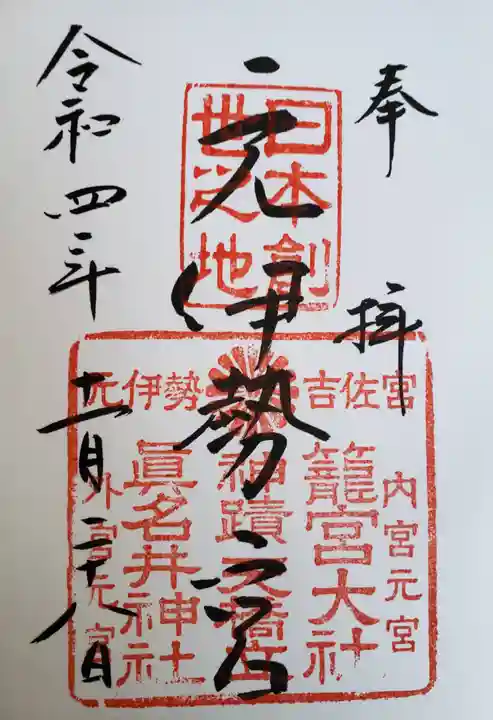 奉拝
日本創
世之地
元伊勢宮
吉佐宮
元伊勢
内宮元宮
籠宮大社
神蹟天橋立
眞名井神社
外宮元宮
令和四年
十一月二十八日